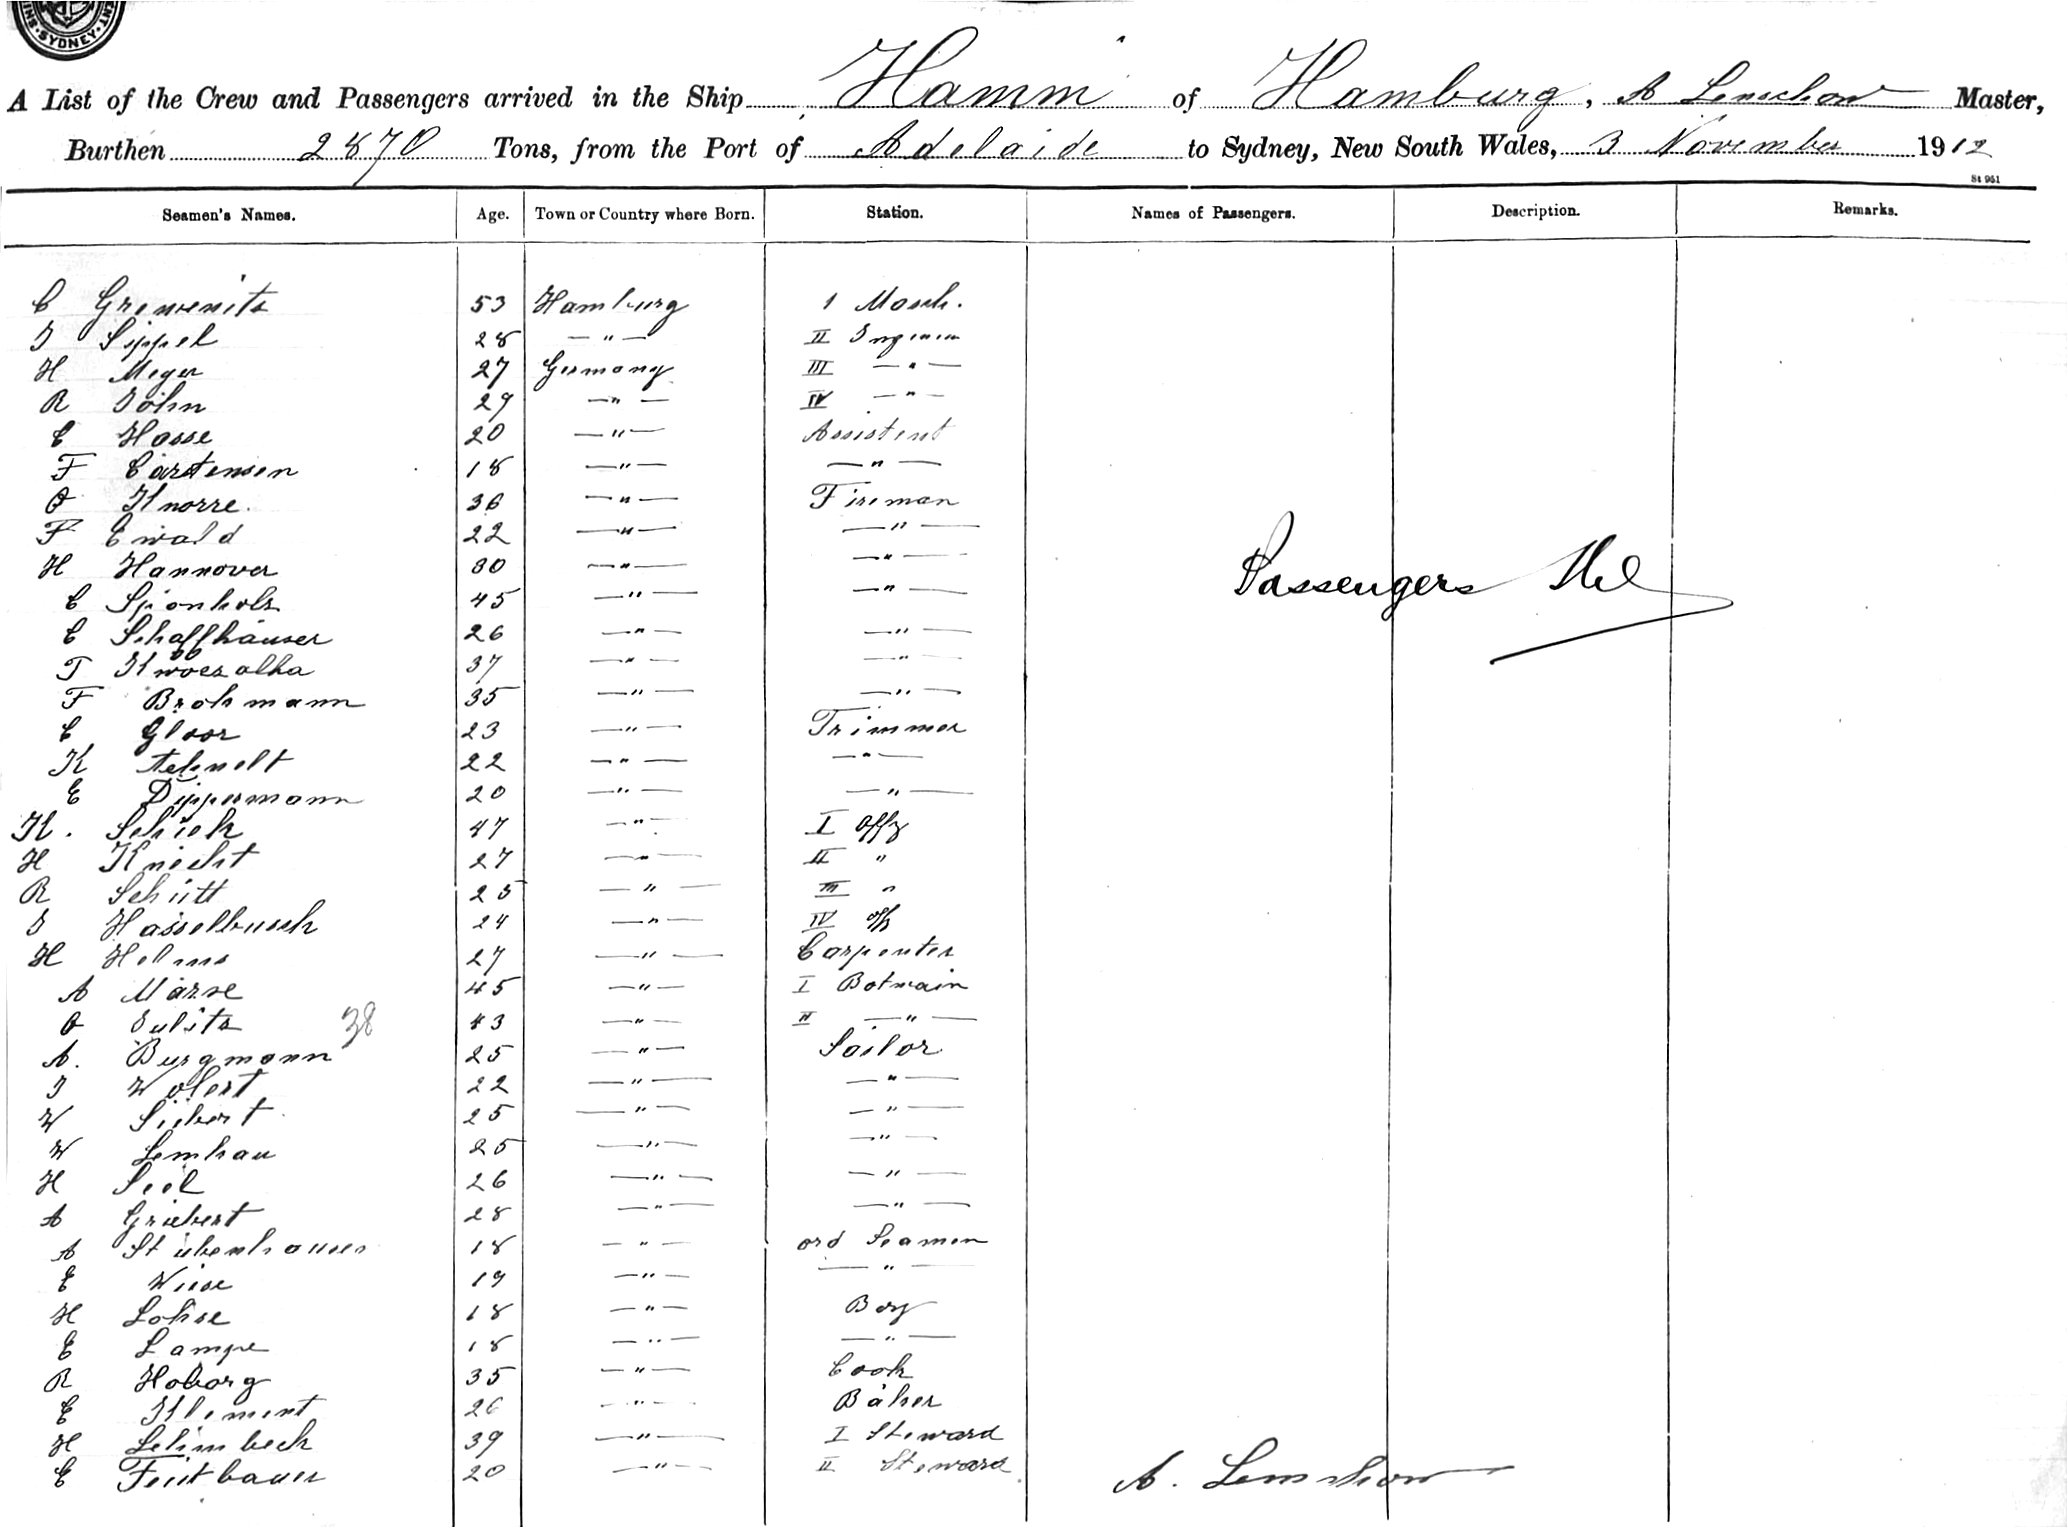 SYDNEY
A List of the Crew and Passengers arrived in the Ship Hamm of Hamburg, A Lenschow Master,
Burthen 2870 Tons, from the Port of Adelaide to Sydney, New South Wales, 3 November 1912
St 951
Seamen's Names. Age. Town or Country where Born. Station. Names of Passengers. Description. Remarks.
C Grewenitz 53 Hamburg 1 Masch.
J Sippel 28 — " — II
H Meyer 27 Germany III — " —
R John 29 — " — IV — " —
C Hasse 20 — " — Assistent
F Carstensen 18 — " — — " —
O Knorre. 36 — " — Fireman
F Ewald 22 — " — — " —
H Hannover 30 — " — — " —
Passengers Nil
C Sponholz 45 — " — — " —
C Schaffhäuser 26 — " — — " —
T 37 — " — — " —
F Brohmann 35 — " — — " —
C Gloor 23 — " — Trimmer
K 22 — " — — " —
E Dippermann 20 — " — — " —
K. Schick 47 — " — I Offz
H Knecht 27 — " — II "
R Schütt 25 — " — III "
J Hasselbusch 24 — " — IV Off
H Helms 27 — " — Carpenter
A 45 — " — I Botswain
O 38 43 — " — II — " —
A. Burgmann 25 — " — Sailor
J 22 — " — — " —
W Siebert 25 — " — — " —
W Lemhau 25 — " — — " —
H Seel 26 — " — — " —
A Griebert 28 — " — — " —
A Stubenhauser 18 — " — ord Seamen
E Wiese 19 — " — — " —
H Lohse 18 — " — Boy
E Lampe 18 — " — — " —
R Hoborg 35 — " — Cook
E Klement 26 — " — Baker
H Lehimbeck 39 — " — I Steward
E Feistbauer 20 — " — II Steward
A. Lenschow